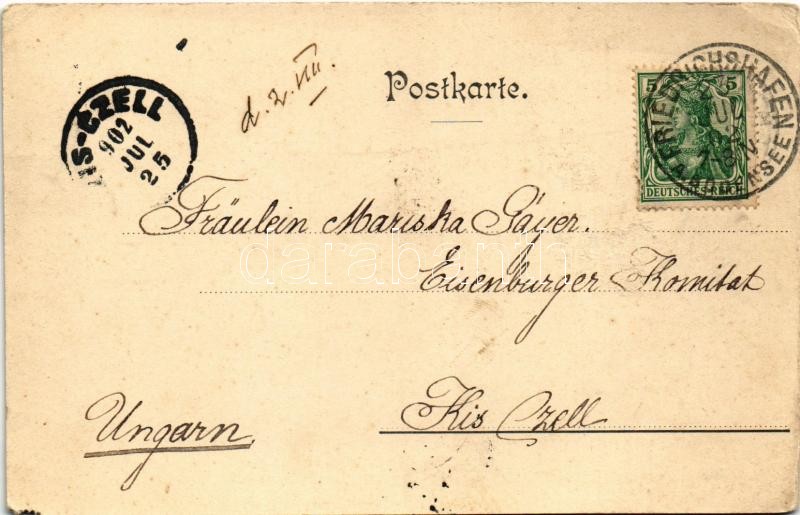 KIS-CZELL
902
JUL
25
d. 2. VIII.
Postkarte.
FRIEDRICHSHAFEN
5 5
DEUTSCHES REICH
Fräulein Mariska Gáyer.
darabanth
Eisenburger Komitat
Kis Czell
Ungarn